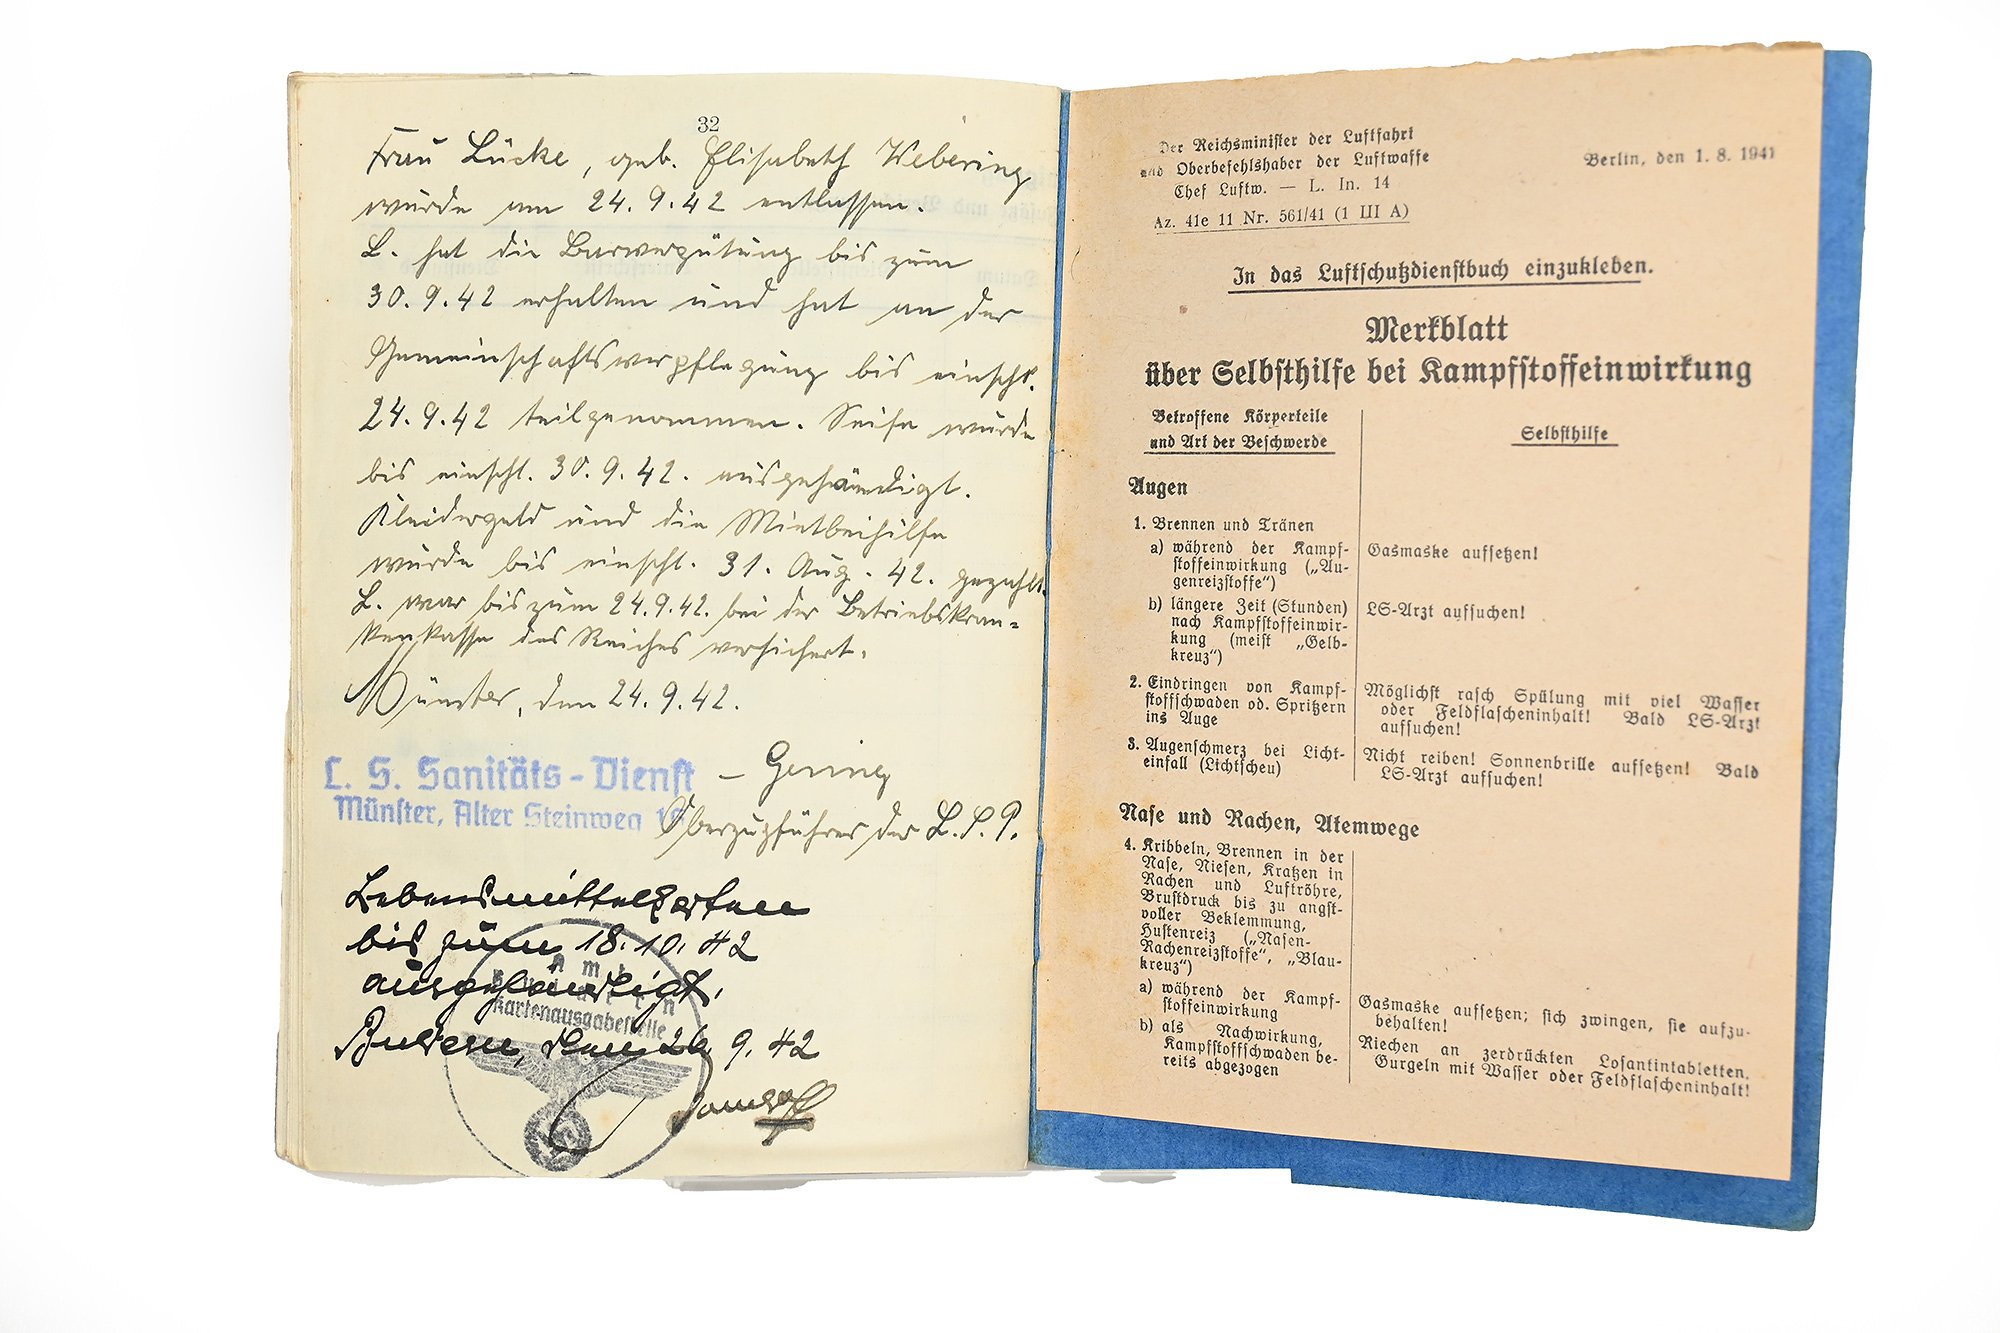 32
Frau Lücke, geb. Elisabeth Webering
wurde am 24.9.42 entlassen.
L. hat die Barvergütung bis zum
30.9.42 erhalten und hat an der
Gemeinschaftsverpflegung bis einschl.
24.9.42 teilgenommen. Seife wurde
bis einschl. 30.9.42. ausgehändigt.
Kleidergeld und die Mietbeihilfe
wurde bis einschl. 31. Aug. 42. gezahlt.
L. war bis zum 24.9.42. bei der Betriebskran=
kenkasse des Reiches versichert.
Münster, den 24.9.42.
L. S. Sanitäts-Dienst
Münster, Alter Steinweg
Oberzugführer der L.S.P.
Lebensmittelkarten
bis zum 18.10.42
ausgehändigt.
den 26. 9. 42
Kartenausgabestelle
Der Reichsminister der Luftfahrt
und Oberbefehlshaber der Luftwaffe
Chef Luftw. — L. In. 14
Az. 41e 11 Nr. 561/41 (1 III A)
Berlin, den 1. 8. 1941
In das Luftschutzdienstbuch einzukleben.
Merkblatt
über Selbsthilfe bei Kampfstoffeinwirkung
Betroffene Körperteile
und Art der Beschwerde
Selbsthilfe
Augen
1. Brennen und Tränen
a) während der Kampf-
stoffeinwirkung („Au-
genreizstoffe“)
Gasmaske aufsetzen!
b) längere Zeit (Stunden)
nach Kampfstoffeinwir-
kung (meist „Gelb-
kreuz“)
LS-Arzt aufsuchen!
2. Eindringen von Kampf-
stoffschwaden od. Spritzern
ins Auge
Möglichst rasch Spülung mit viel Wasser
oder Feldflascheninhalt! Bald LS-Arzt
aufsuchen!
3. Augenschmerz bei Licht-
einfall (Lichtscheu)
Nicht reiben! Sonnenbrille aufsetzen! Bald
LS-Arzt aufsuchen!
Nase und Rachen, Atemwege
4. Kribbeln, Brennen in der
Nase, Niesen, Kratzen in
Rachen und Luftröhre,
Brustdruck bis zu angst-
voller Beklemmung,
Hustenreiz („Nasen-
Rachenreizstoffe“, „Blau-
kreuz“)
a) während der Kampf-
stoffeinwirkung
Gasmaske aufsetzen; sich zwingen, sie aufzu-
behalten!
b) als Nachwirkung,
Kampfstoffschwaden be-
reits abgezogen
Riechen an zerdrückten Losantintabletten.
Gurgeln mit Wasser oder Feldflascheninhalt!